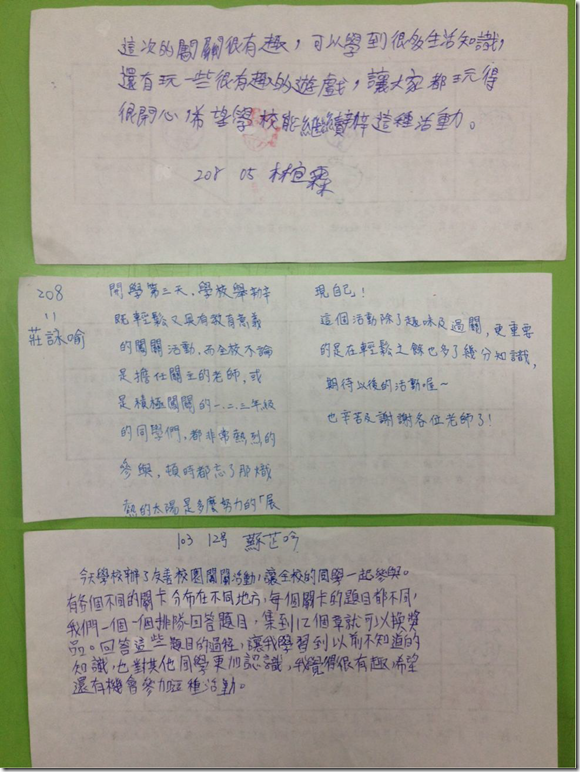 這次的闖關很有趣，可以學到很多生活知識，
還有玩一些很有趣的遊戲，讓大家都玩得
很開心，希望學校能繼續辦這種活動。
208 05 林宜霖
208
11
莊詠喻
開學第三天，學校舉辦
既輕鬆又具有教育意義
的闖關活動，而全校不論
是擔任關主的老師，或
是積極闖關的一、二、三年級
的同學們，都非常熱烈的
參與，頓時都忘了那熾
熱的太陽是多麼努力的「展
現自己！
這個活動除了趣味及過關，更重要
的是在輕鬆之餘也多了幾分知識，
期待以後的活動喔～
也辛苦及謝謝各位老師了！
103 12号 蘇芷吟
今天學校辦了友善校園闖關活動，讓全校的同學一起參與。
有各個不同的關卡分布在不同地方，每個關卡的題目都不同，
我們一個一個排隊回答題目，集到12個章就可以換獎
品。回答這些題目的過程，讓我學習到以前不知道的
知識，也對其他同學更加認識，我覺得很有趣，希望
還有機會參加這種活動。